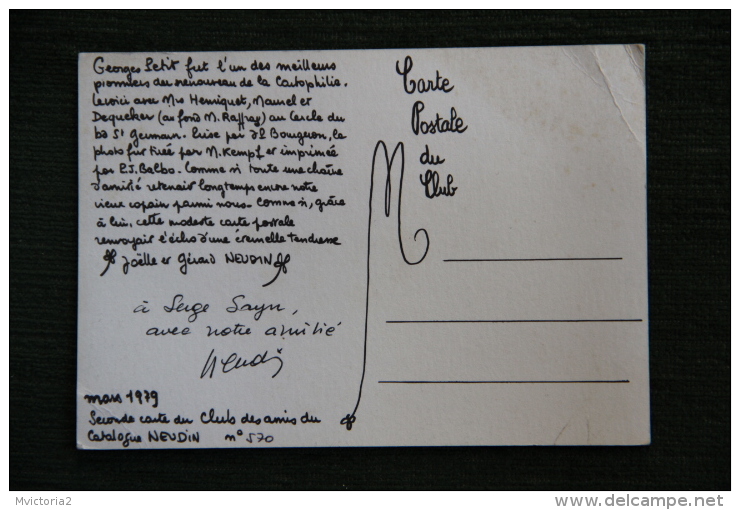 Georges Petit fut l'un des meilleurs
pionniers du renouveau de la Cartophilie.
Le voici avec Mrs Henriquet, Mamel et
Dequeker (au fond M. Raffray) au Cercle du
bd St Germain. Prise par Bougeron, la
photo fut tirée par M. Kempf et imprimée
par P.J. Balbo. Comme si toute une chaîne
d'amitié retenait longtemps encore notre
vieux copain parmi nous. Comme si, grâce
à lui, cette modeste carte postale
renvoyait l'écho d'une éternelle tendresse
Joëlle et Gérard NEUDIN
à Serge Sayn,
avec notre amitié
Neudin
mars 1979
Seconde carte du Club des amis du
Catalogue NEUDIN n° 570
Carte
Postale
du
Club
M
Mvictoria2
http://www.delcampe.net